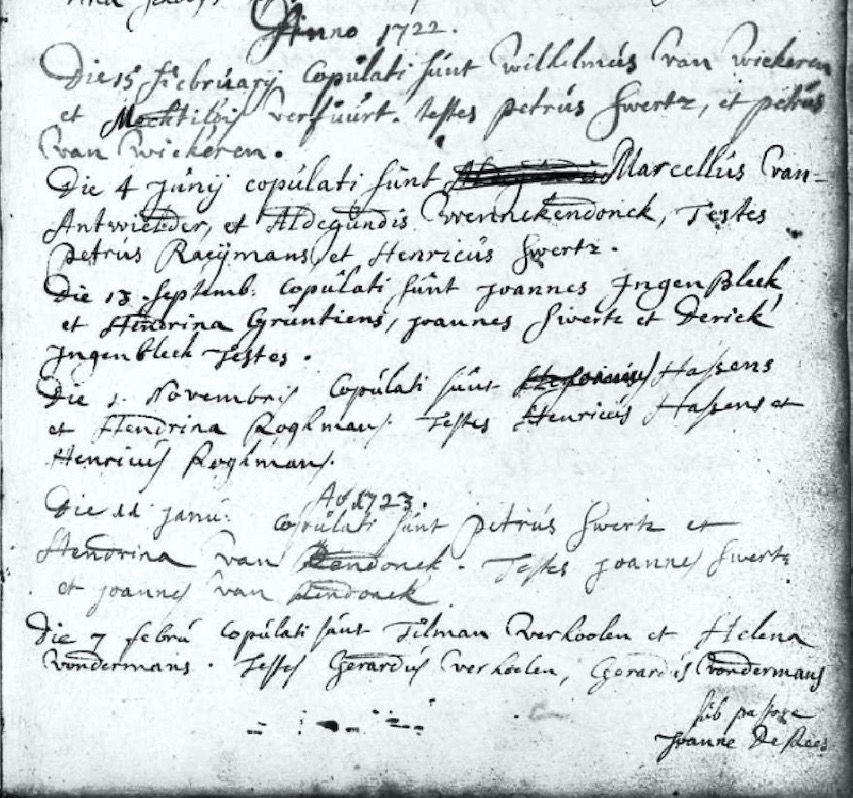 Anno 1722.
Die 15 Februarij Copulati sunt Wilhelmus Van Wickeren
et Mechtildis Versuurt. testes petrus Swertz, et petrus
Van Wickeren.
Die 4 Junij copulati sunt Marcellus Van-
Antwielder, et Aldegundis Wennekendonck, Testes
petrus Raeijmans, et Henricus Swertz.
Die 13 Septemb: Copulati sunt joannes Ingenbleek
et Hendrina Gruntiens, joannes Swertz et Derick
Jngenbleek Testes.
Die 1. Novembris Copulati sunt Hassens
et Hendrina Roghmans. Testes Henricus Hassens et
Henricus Roghmans.
Ao 1723.
Die 11 janu: Copulati sunt petrus Swertz et
Hendrina van Dendonck. Testes joannes Swertz
et joannes van Dendonck
Die 7 febru Copulati sunt Tilman Verhoolen et Helena
Vondermans. Testes Gerardus Verhoelen, Gerardus Vondermans
sub pastore
Joanne De Rees